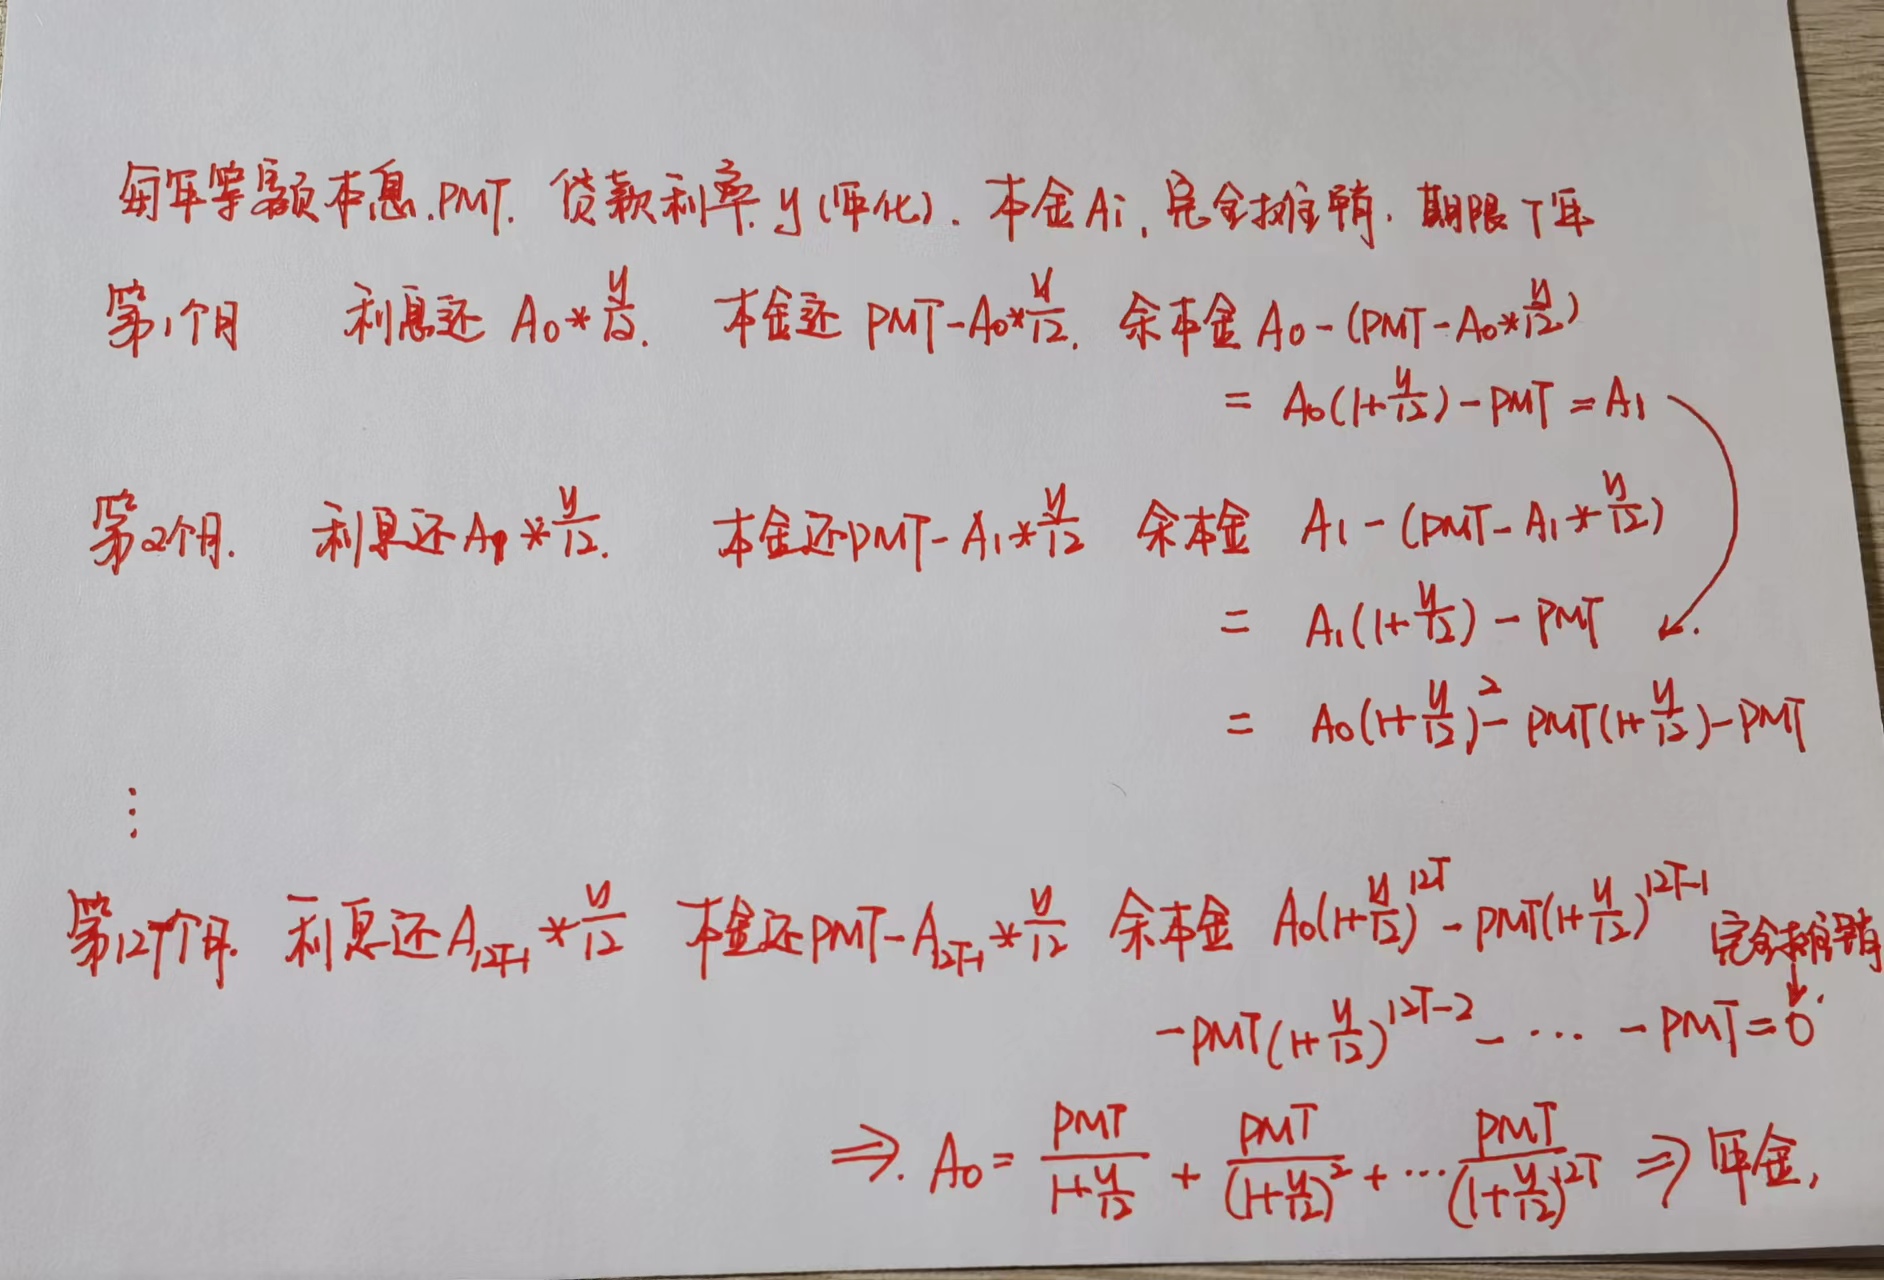 每年等额本息.PMT. 贷款利率.y(年化). 本金Ai, 完全摊销. 期限T年
第1个月 利息还 A₀*y/12. 本金还 PMT-A₀*y/12. 余本金 A₀-(PMT-A₀*y/12)
= A₀(1+y/12)-PMT=A₁
第2个月. 利息还A₁*y/12. 本金还PMT-A₁*y/12 余本金 A₁-(PMT-A₁*y/12)
= A₁(1+y/12)-PMT
= A₀(1+y/12)²-PMT(1+y/12)-PMT
⋮
第12T个月. 利息还A₁₂T₋₁*y/12 本金还PMT-A₁₂T₋₁*y/12 余本金 A₀(1+y/12)^12T-PMT(1+y/12)^12T-1 完全摊销
↓
-PMT(1+y/12)^12T-2-…-PMT=0
⇒. A₀=PMT/(1+y/12)+PMT/(1+y/12)²+…PMT/(1+y/12)^12T ⇒年金,